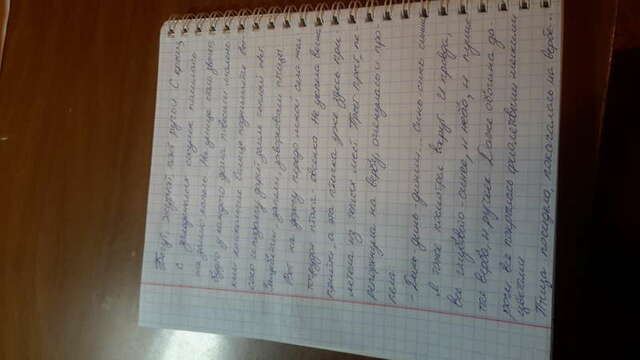 Бегут, журчат, поют ручьи. С крыш,
с заледенелых сосулек полилась
на землю капель. На улице стало звонко,
будто у каждого дома повесили малень-
кий колокольчик. Солнце поднимается вы-
соко и подолгу дарит земле теплый свет.
Защебетали, запели, заворковали птицы.
Вот на дорогу передо мной села жел-
тогрудая птаха - овсянка. Не успела весна
прийти, а эта птичка уже здесь при-
летела из теплых мест. Прыг прыг, пе-
репорхнула на вербу, огляну­лась и про-
пела:
- Динь-динь-динии... Синь-синь синии
Я тоже посмотрел вокруг. И правда,
все глубовато-синее, и небо, и пушис
тая верба, и ручеек. Даже обочина до-
роги вся покрылась фиолетовыми мелкими
цветами
Птица посидела, покачалась на вербе...